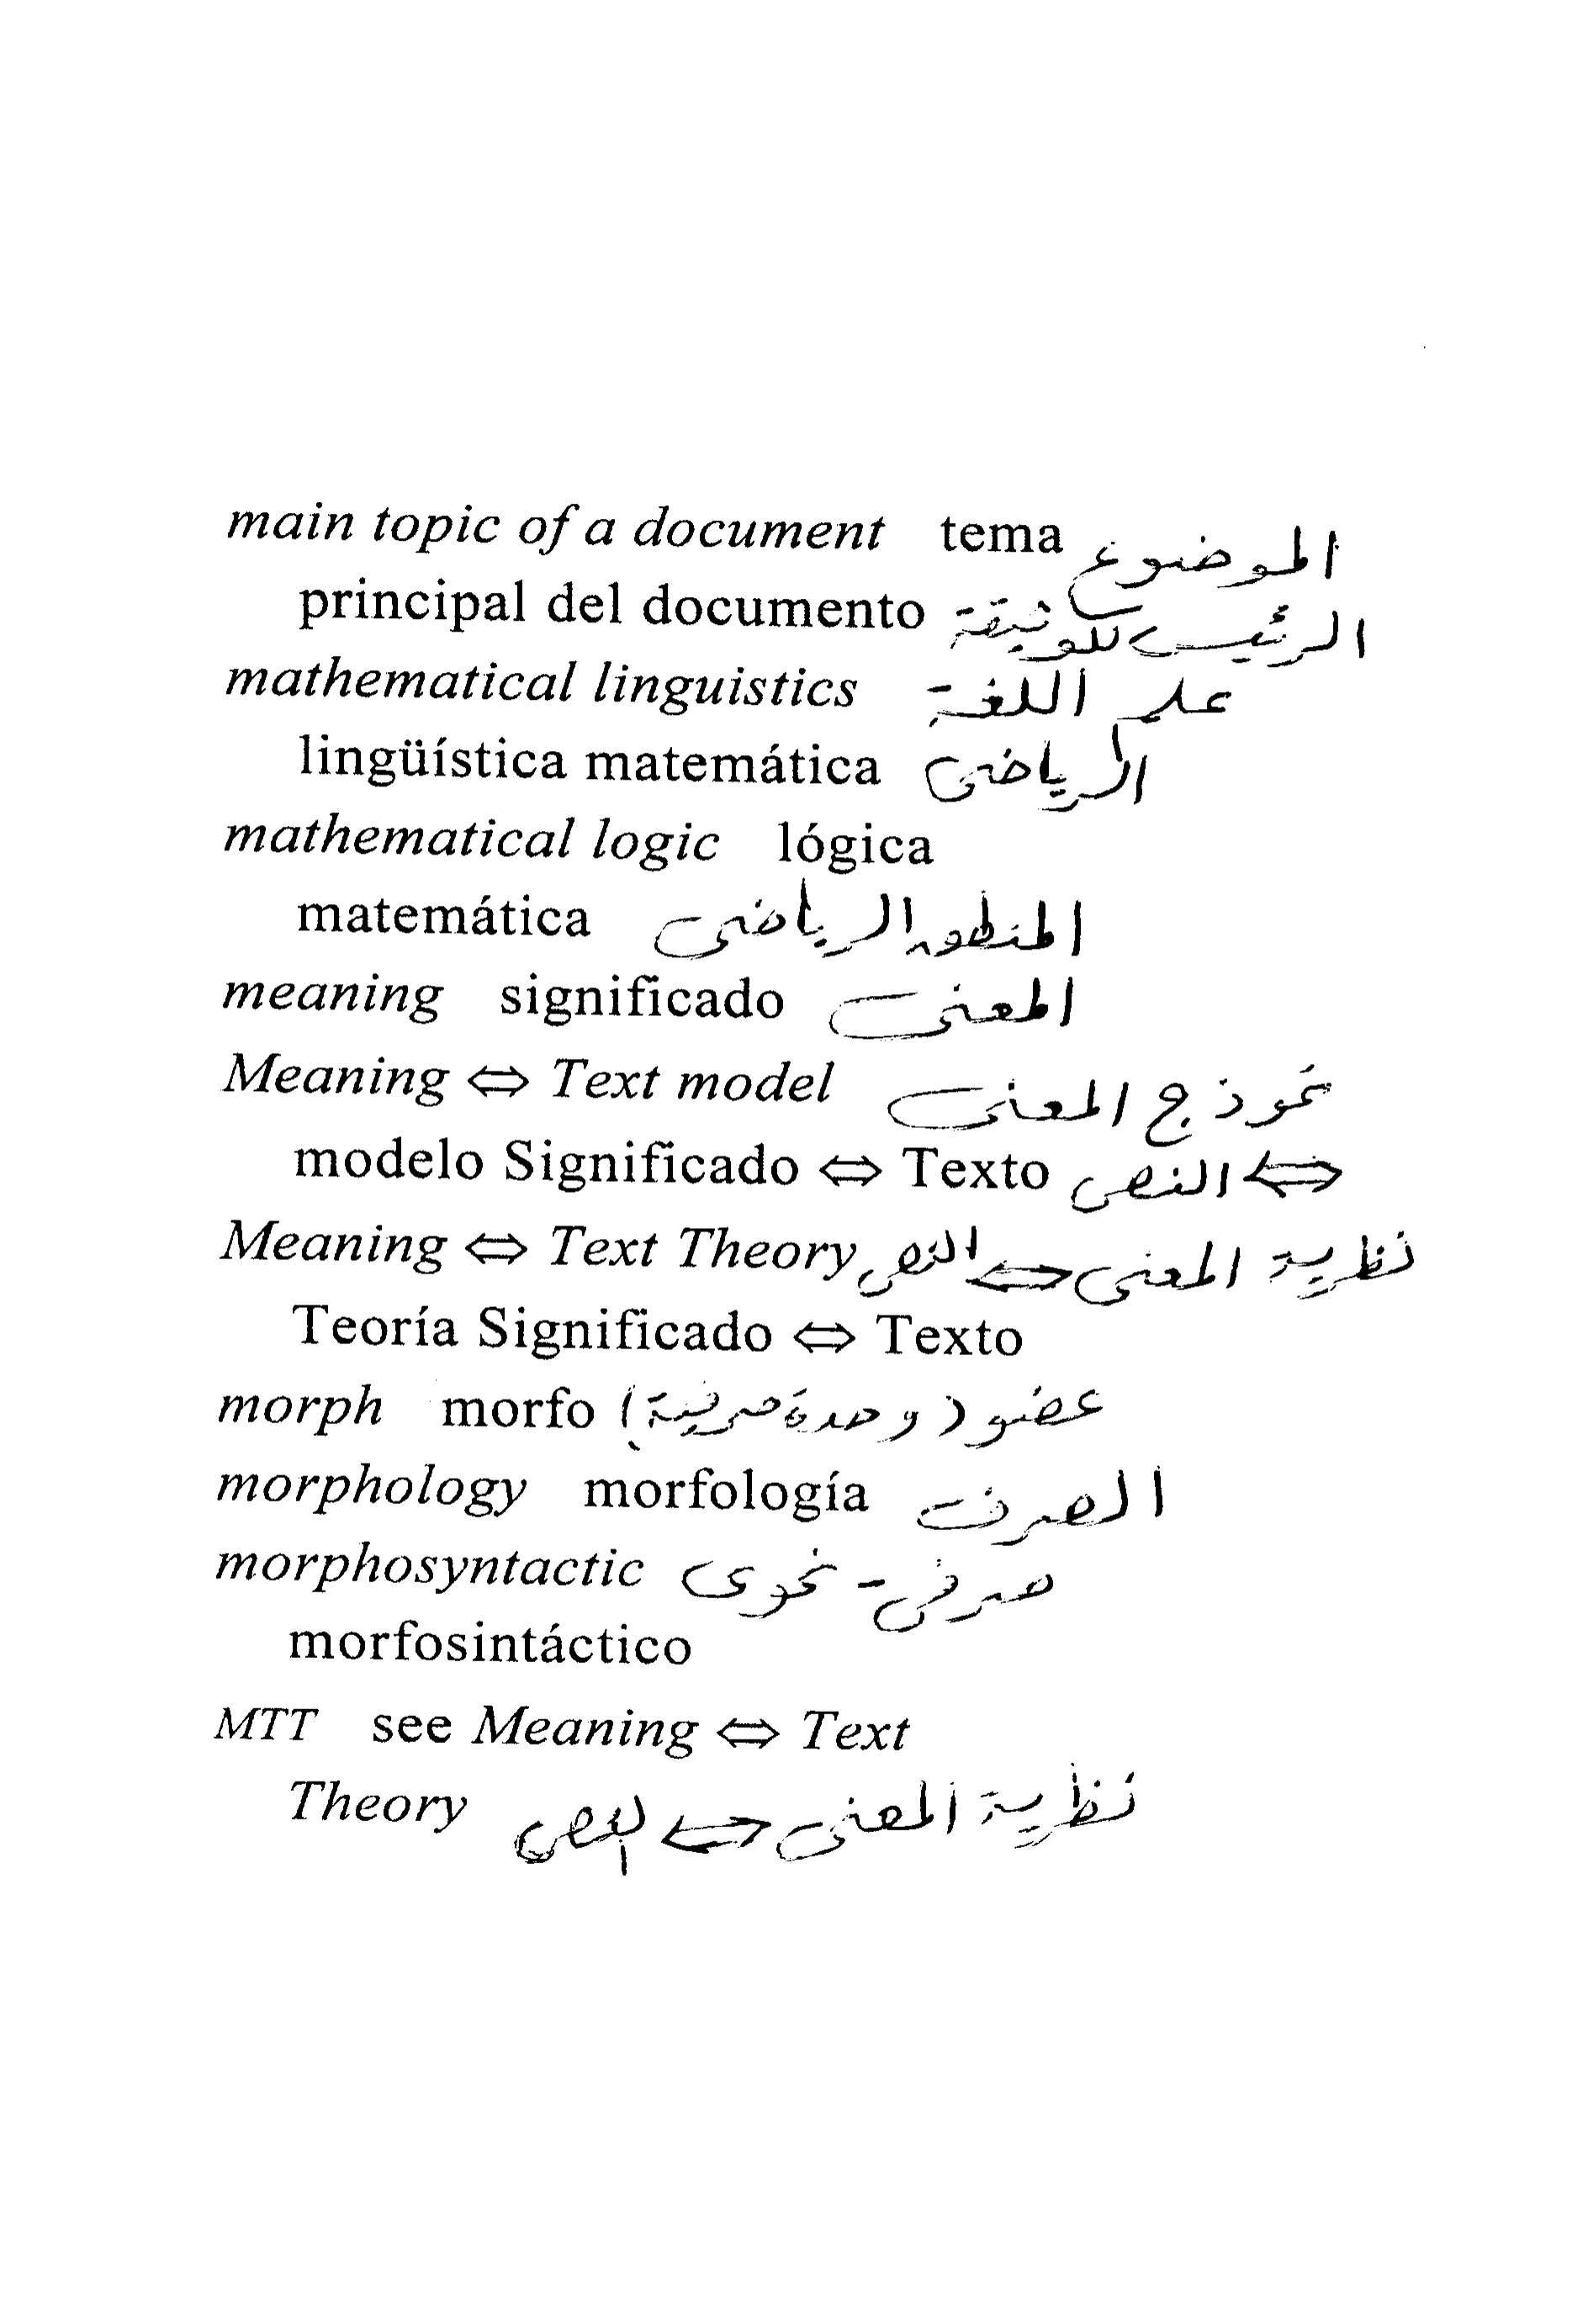 main topic of a document tema الموضوع
principal del documento الرئيس للوثيقة
mathematical linguistics علم اللغة
lingüística matemática الرياضى
mathematical logic lógica
matemática الرياضى
meaning significado المعنى
Meaning ⇔ Text model نموذج المعنى
modelo Significado ⇔ Texto ⇔ النص
Meaning ⇔ Text Theory نظرية المعنى ⇔ النص
Teoría Significado ⇔ Texto
morph morfo عضو (وحدة صرفية)
morphology morfología الصرف
morphosyntactic صرفى - نحوى
morfosintáctico
MTT see Meaning ⇔ Text
Theory نظرية المعنى ⇔ النص